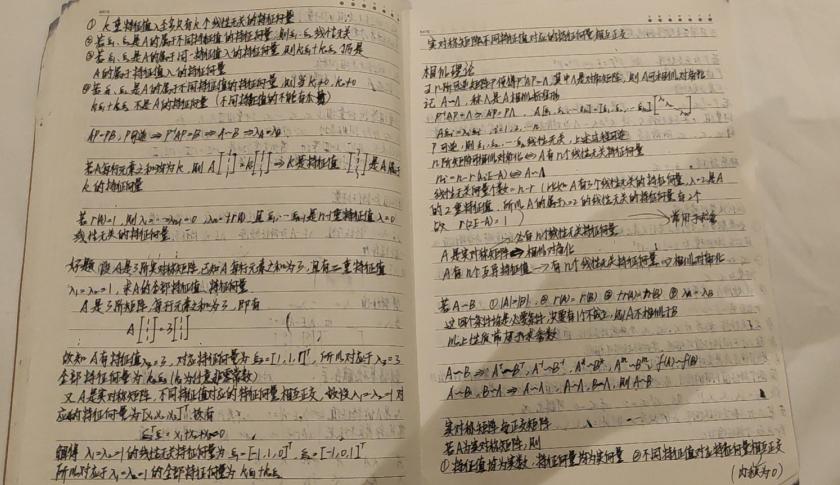 ① k重特征值λ至多只有k个线性无关的特征向量
② 若ξ₁, ξ₂是A的属于不同特征值的特征向量,则ξ₁, ξ₂线性无关
③ 若ξ₁, ξ₂是A的属于同一特征值λ的特征向量,则k₁ξ₁+k₂ξ₂仍是
A的属于特征值λ的特征向量
④ 若ξ₁, ξ₂是A的属于不同特征值的特征向量,则当k₁≠0, k₂≠0
k₁ξ₁+k₂ξ₂不是A的特征向量(不同特征值的不能
AP=PB, P可逆 ⇒ P⁻¹AP=B ⇒ A~B ⇒ λA=λB
若A每行元素之和均为k,则 ⇒ k是特征值 是A属于
k的特征向量
若r(A)=1,则λ₁=…=λn-1=0 λn=tr(A),且ξ₁…ξn-1是n-1重特征值λ=0
线性无关的特征向量
好题 设A是3阶实对称矩阵,已知A每行元素之和为3,且有二重特征值
λ₁=λ₂=1,求A的全部特征值、特征向量
A是3阶矩阵,每行元素之和为3,即有
A[1 1 1]=3[1 1 1]
故知A有特征值λ₃=3,对应特征向量为ξ₃=[1,1,1]ᵀ,所以对应于λ₃=3
全部特征向量为k₃ξ₃(k₃为任意非零常数)
又A是实对称矩阵,不同特征值对应的特征向量相互正交,故设λ₁=λ₂=1对
应的特征向量为[x₁,x₂,x₃]ᵀ,故有
x₁+x₂+x₃=0
解得λ₁=λ₂=1的线性无关特征向量为ξ₁=[-1,1,0]ᵀ, ξ₂=[-1,0,1]ᵀ
所以对应于λ₁=λ₂=1的全部特征向量为k₁ξ₁+k₂ξ₂
实对称矩阵不同特征值对应的特征向量相互正交
相似理论
若n阶可逆矩阵P使得P⁻¹AP=Λ,其中Λ是对角矩阵,则A可相似对角化
记A~Λ,称Λ是A相似标准形
P⁻¹AP=Λ ⇒ AP=PΛ, A[ξ₁,ξ₂…ξn]=[ξ₁,ξ₂,…ξn]
Aξi=λiξi, i=1,2,…n
P可逆,则ξ₁,ξ₂,…ξn线性无关,上述过程可逆
n阶矩阵可相似对角化 ⇔ A有n个线性无关特征向量
ni=n-r(λiE-A) ⇔ A~Λ
线性无关向量个数=n-r(比如A有3个线性无关的特征向量,λ=2是A
的2重特征值,所以A的属于λ=2的线性无关的特征向量有2个
故 r(2E-A)=1)
→必有n个线性无关特征向量 →常用于求参
A是实对称矩阵 ⇒ 相似对角化
A有n个互异特征值 → 有n个线性无关特征向量 ⇒ 相似对角化
若A~B ①|A|=|B|, ② r(A)=r(B) ③ tr(A)=tr(B) ④ λA=λB
这四个条件均是必要条件,只要有1个不成立,则A不相似于B
以上性质常用于求参数
A~B ⇒ Aᵀ~Bᵀ, A⁻¹~B⁻¹, A*~B*, Aᵐ~Bᵐ, f(A)~f(B)
A~Λ, B~Λ ⇒ A~Λ, B~Λ, 则A~B
实对称矩阵与正交矩阵
若A为实对称矩阵,则
①特征值均为实数,特征向量均为实向量 ②不同特征值对应特征向量相互正交
(内积为0)